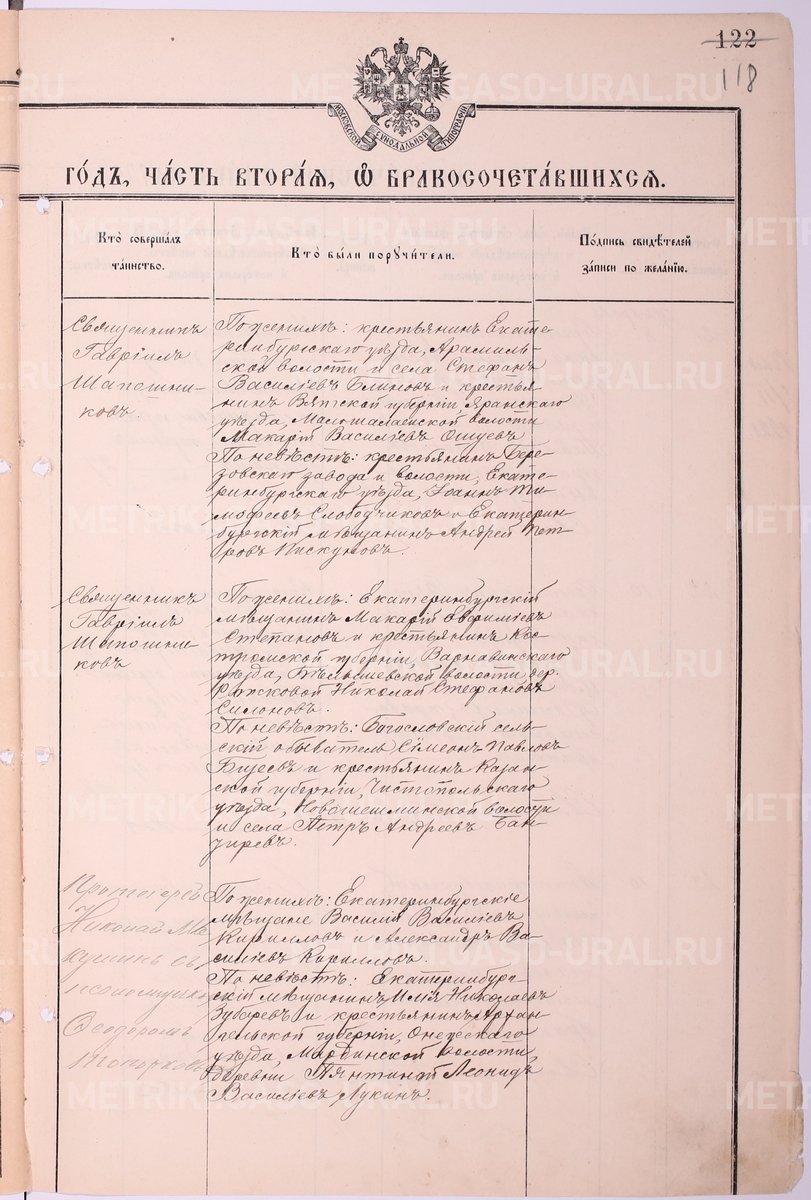 122
118
МОСКОВСКОЙ СѴНОДАЛЬНОЙ ТИПОГРАФІИ
ГО́ДЪ, ЧА́СТЬ ВТОРА́Я, Ѽ БРАКОСОЧЕТА́ВШИХСЯ.
Кто̀ соверша́лъ
та́инство.
Кто̀ бы́ли поручи́тели.
По́дпись свидѣ́телей
за́писи по жела́нїю.
Священникъ
Гавріилъ
Шапошни-
ковъ.
По женихѣ: крестьянинъ Екате-
ринбургскаго уѣзда, Арамиль-
ской волости и села Стефанъ
Василіевъ Блиновъ и крестья-
нинъ Вятской губерніи, Яранскаго
уѣзда, волости
Макарій Василіевъ Ошуевъ
По невѣстѣ: крестьянинъ Бере-
зовскаго завода и волости, Екате-
ринбургскаго уѣзда, Іоаннъ Ти-
мофеевъ Слободчиковъ и Екатерин-
бургскій мѣщанинъ Андрей Пет-
ровъ Пискуновъ.
Священникъ
Гавріилъ
Шапошни-
ковъ
По женихѣ: Екатеринбургскій
мѣщанинъ Макарій Евфиміевъ
Степановъ и крестьянинъ Кос-
тромской губерніи, Варнавинскаго
уѣзда, волости дер.
Николай Стефановъ
Силоновъ.
По невѣстѣ: Богословскій сель-
скій обыватель Симеонъ Павловъ
и крестьянинъ Казан-
ской губерніи, Чистопольскаго
уѣзда, Новошешминской волости
и села Петръ Андреевъ Бан-
щиревъ.
Протоіерей
Николай
съ
псаломщикомъ
Ѳеодоромъ
Топорковымъ
По женихѣ: Екатеринбургскіе
мѣщане Василій Василіевъ
Кирилловъ и Александръ Ва-
силіевъ Кирилловъ.
По невѣстѣ: Екатеринбург-
скій мѣщанинъ Илія Николаевъ
Зубаревъ и крестьянинъ Архан-
гельской губерніи, Онежскаго
уѣзда, Мардинской волости,
деревни Пянтиной Леонидъ
Василіевъ Лукинъ.
METRIKI.GASO-URAL.RU